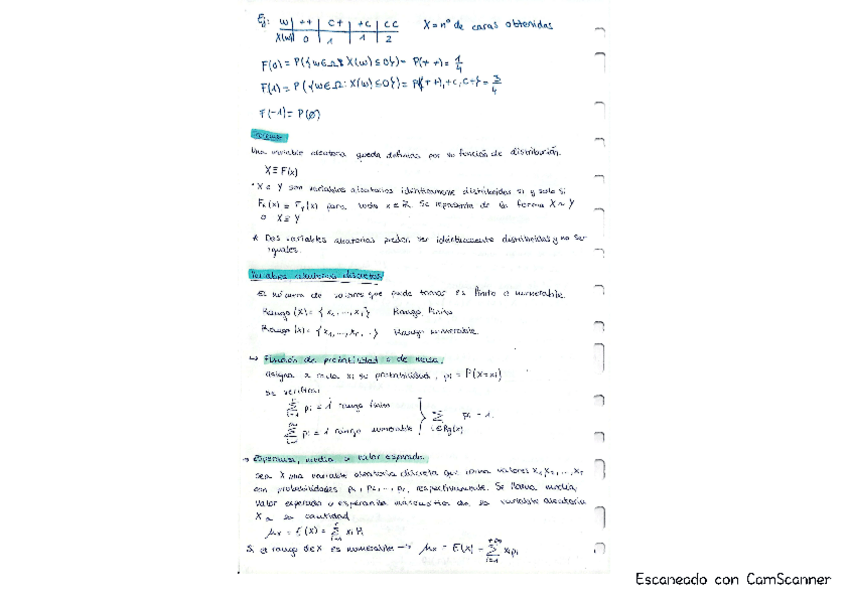 Ej: w | ++ | C+ | +C | CC X = nº de caras obtenidas
X(w) | 0 | 1 | 1 | 2
F(0) = P({w∈Ω: X(w) ≤ 0}) = P(++) = 1/4
F(1) = P({w∈Ω: X(w) ≤ 0}) = P(++, +C, C+) = 3/4
F(-1) = P(∅)
Una variable aleatoria queda definida por su función de distribución.
X ≡ F(x)
• X e Y son variables aleatorias idénticamente distribuidas si y solo si
Fx(x) = Fy(x) para todo x ∈ R. Se representa de la forma X ~ Y
o X ≡ Y
* Dos variables aleatorias pueden ser idénticamente distribuidas y no ser
iguales.
Variables aleatorias discretas
El número de valores que puede tomar es finito o numerable.
Rango (X) = {x1, ..., xr} Rango finito
Rango (X) = {x1, ..., xr, ..} Rango numerable
↳ Función de probabilidad o de masa.
Asigna a cada xi su probabilidad, pi = P(X=xi)
Se verifica:
pi = 1 rango finito
pi = 1 rango numerable } Σ i∈Rg(x) pi = 1.
→ Esperanza, media o valor esperado.
Sea X una variable aleatoria discreta que toma valores x1, x2, ..., xr
con probabilidades p1, p2, ..., pr, respectivamente. Se llama media,
valor esperado o esperanza matemática de la variable aleatoria
X a la cantidad
μx = E(X) = Σ xi Pi
Si el rango de X es numerable → μx = E(X) = Σ xi pi
Escaneado con CamScanner